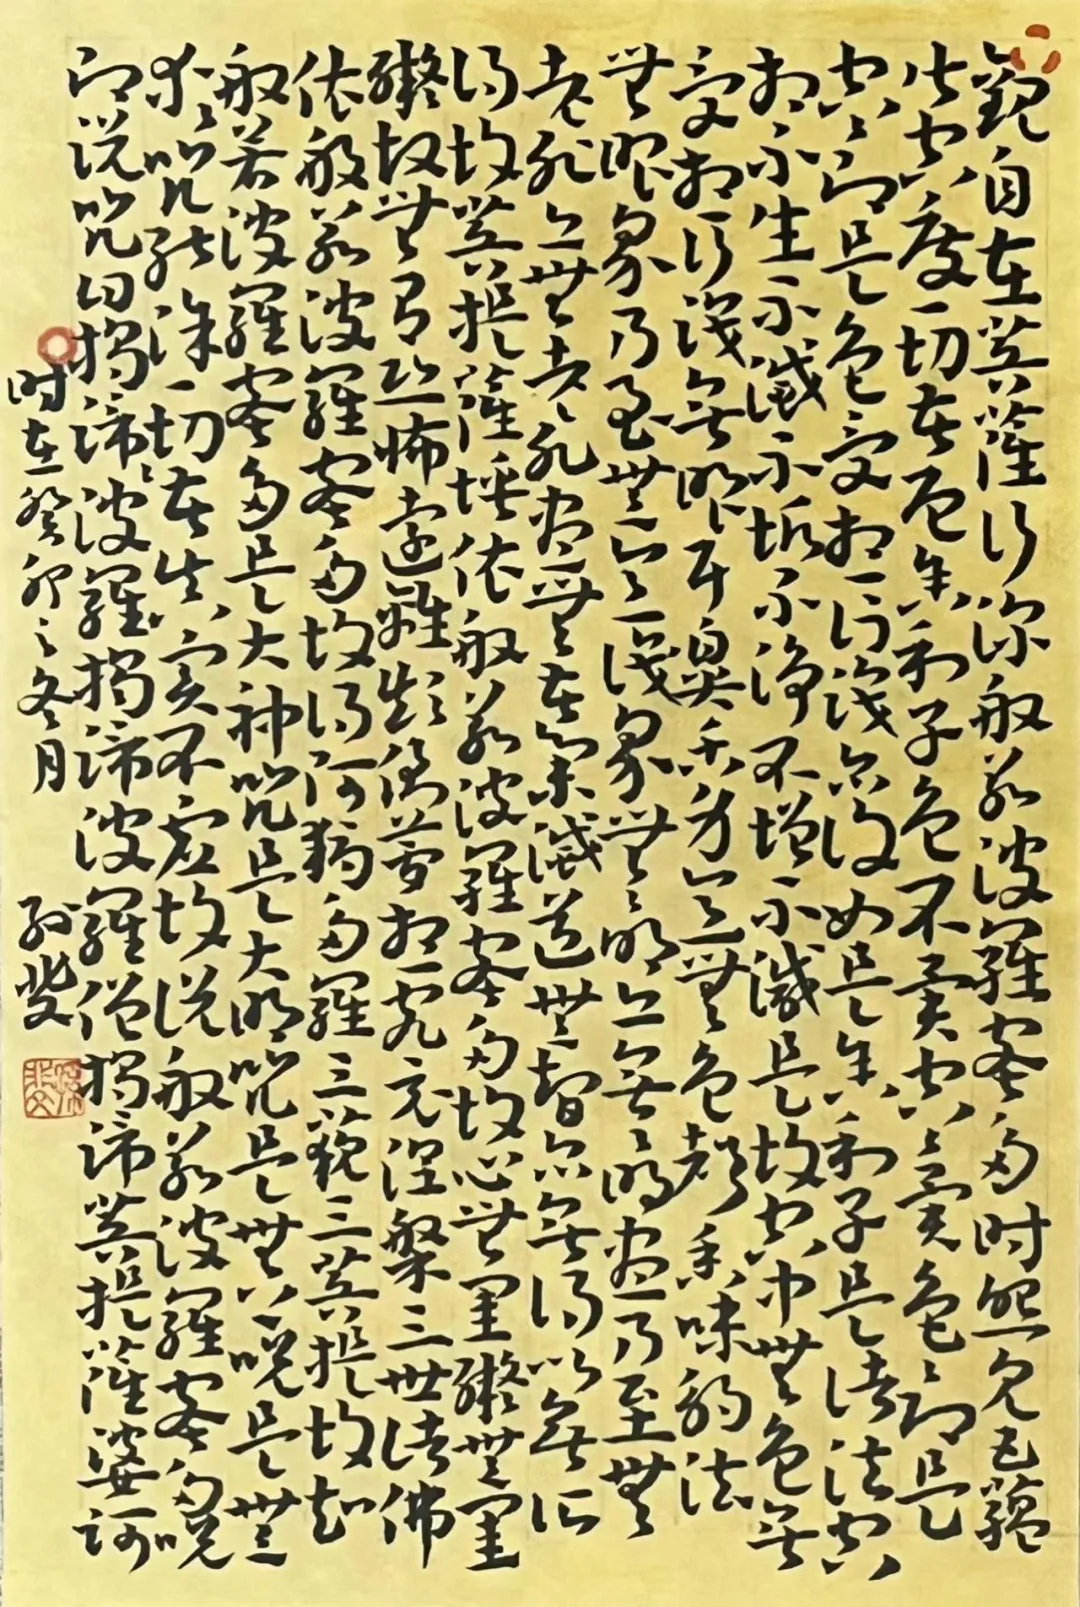 觀自在菩薩行深般若波羅蜜多時照見五蘊
皆空度一切苦厄舍利子色不異空々不異色々即是
空々即是色受想行識亦復如是舍利子是諸法空
相不生不滅不垢不淨不增不減是故空中無色無
受想行識無眼耳鼻舌身意無色聲香味觸法
無眼界乃至無意識界無々明亦無々明盡乃至無
老死亦無老死盡無苦集滅道無智亦無得以無所
得故菩提薩埵依般若波羅蜜多故心無罣礙無罣
礙故無有恐怖遠離顛倒夢想究竟涅槃三世諸佛
依般若波羅蜜多故得阿耨多羅三藐三菩提故知
般若波羅蜜多是大神咒是大明咒是無上咒是無
等々咒能除一切苦真實不虛故說般若波羅蜜多咒
即說咒曰揭諦々波羅揭諦波羅僧揭諦菩提薩婆訶
時在癸卯之冬月 孫斐